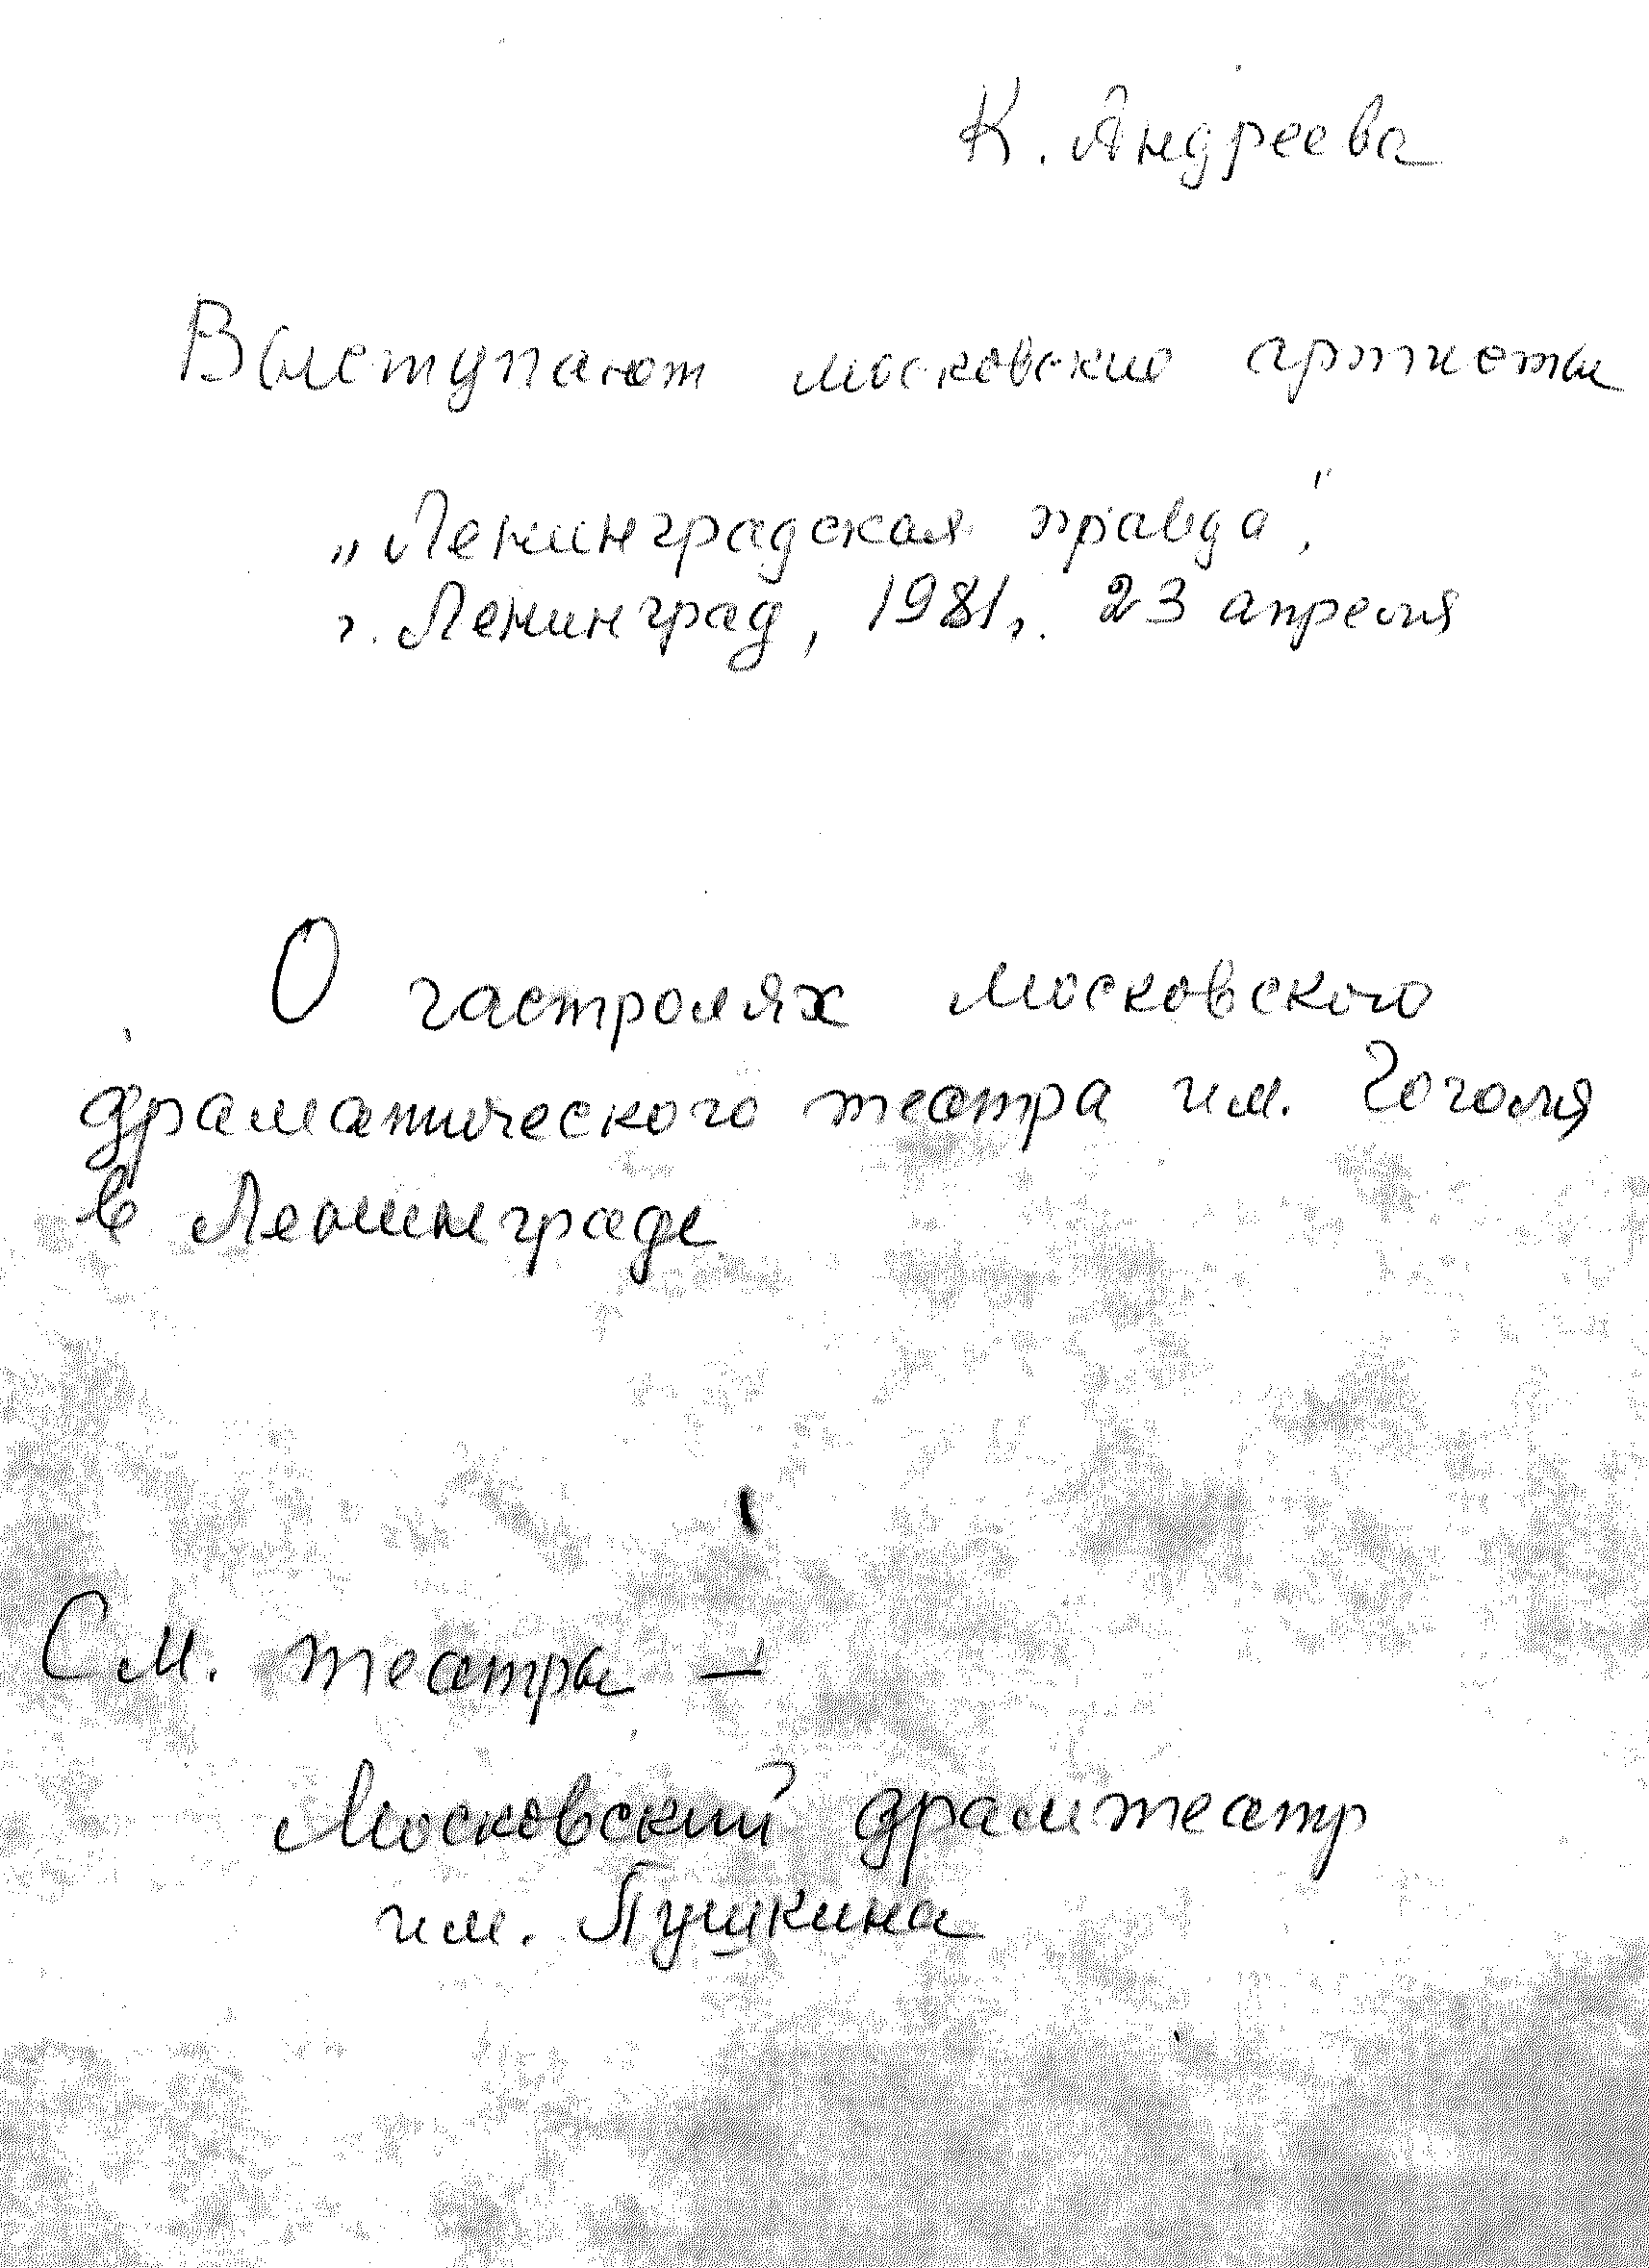 К. Андреева
Выступают московские артисты
„Ленинградская правда",
г. Ленинград, 1981г. 23 апреля
О гастролях московского
драматического театра им. Гоголя
в Ленинграде
См. театры —
Московский драмтеатр
им. Пушкина